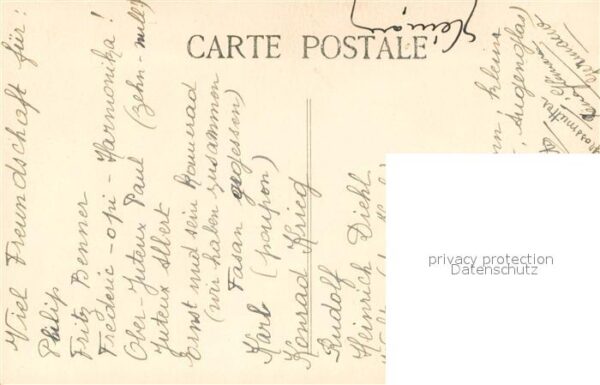 CARTE POSTALE
Viel Freundschaft für:
Philip
Fritz Benner
Frederic-opi-Harmonika!
Ober-Juteux Paul (Zehn-mille)
Juteux Albert
Ernst und sein Kamerad
(wir haben zusammen
Fasan gegessen)
Karl (poupon)
Konrad Krieg
Rudolf
Heinrich Diehl
klein
Augenglas)
Grossmutter
privacy protection
Datenschutz